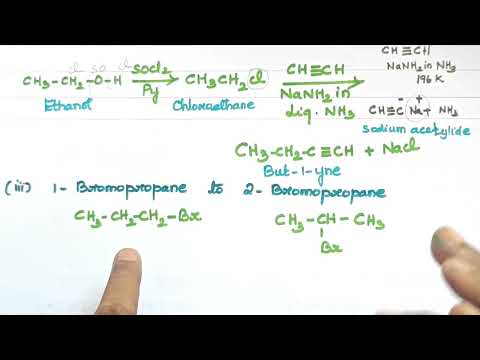 cl so cl
CH₃-CH₂-O-H SOCl₂ Py CH₃CH₂Cl CH≡CH NaNH₂ in liq. NH₃
Ethanol Chloroethane
CH≡CH
NaNH₂ in NH₃
196 K
CH≡C⁻ Na⁺ + NH₃
sodium acetylide
CH₃-CH₂-C≡CH + NaCl
But-1-yne
(iii) 1-Bromopropane to 2-Bromopropane
CH₃-CH₂-CH₂-Br CH₃-CH-CH₃
Br